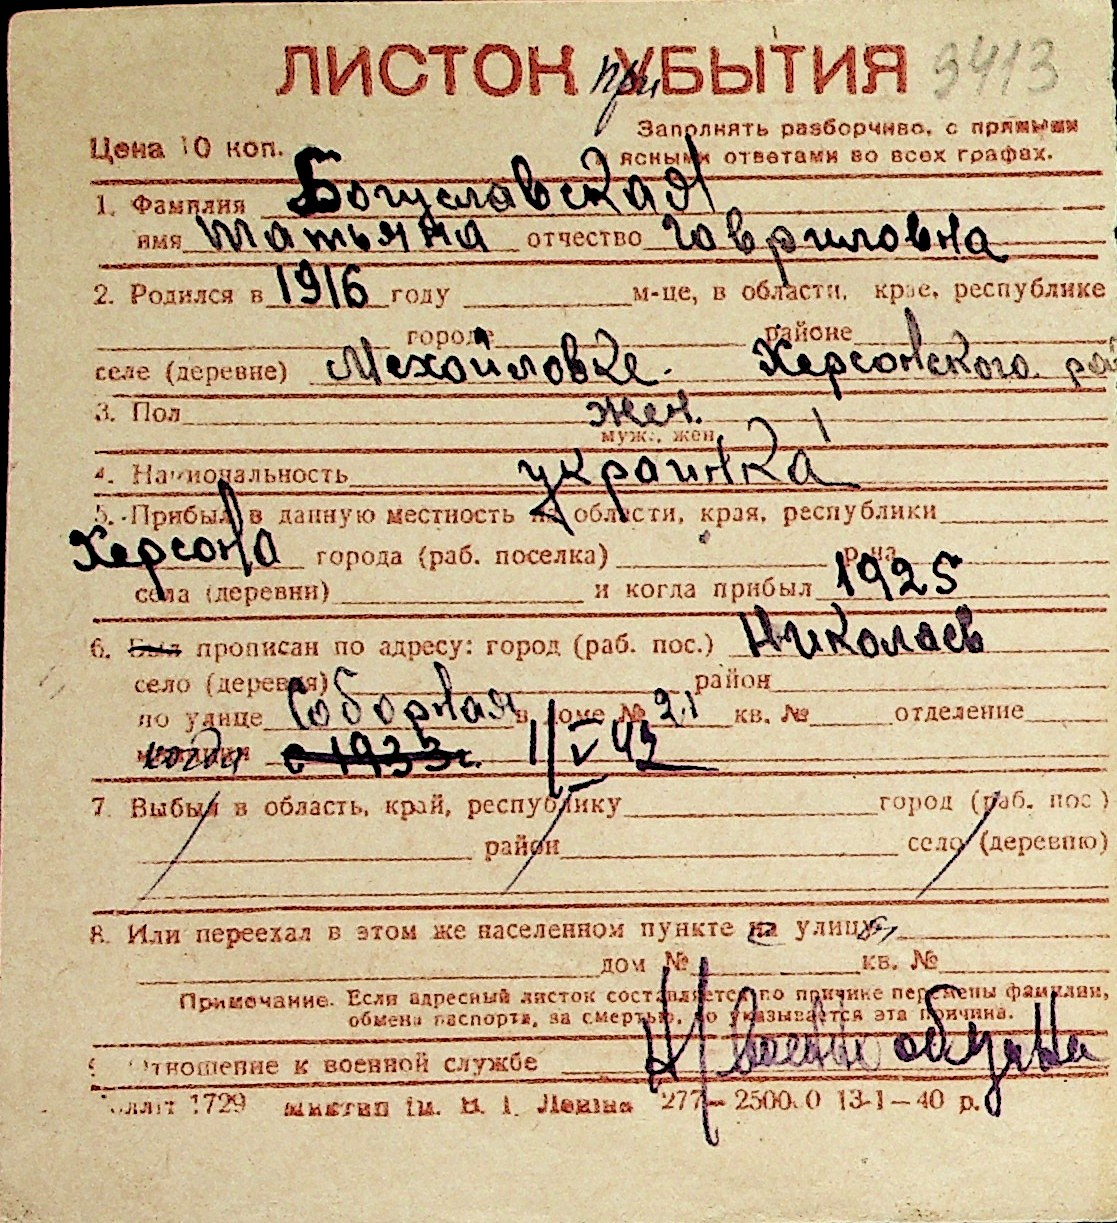 ЛИСТОК УБЫТИЯ при 9413
Цена 10 коп.
Заполнять разборчиво, с прямыми
и ясными ответами во всех графах.
1. Фамилия Богуславская
имя Татьяна отчество Гавриловна
2. Родился в 1916 году м-це, в области, крае, республике
городе районе
селе (деревне) Мехайловке. Херсонского рай
3. Пол жен.
муж., жен.
4. Национальность украинка
5. Прибыл в данную местность из области, края, республики
Херсона города (раб. поселка) р-на
села (деревни) и когда прибыл 1925
6. Был прописан по адресу: город (раб. пос.) Николаев
село (деревня) район
по улице Соборная в доме № 21 кв. № отделение
когда с 1933г. 1/V 42
7. Выбыл в область, край, республику город (раб. пос.)
район село (деревню)
8. Или переехал в этом же населенном пункте на улицу
дом № кв. №
Примечание. Если адресный листок составляется по причине перемены фамилии,
обмена паспорта, за смертью, то указывается эта причина.
9. Отношение к военной службе Н/Военнообязана
1729 ім. В. І. Леніна 277—2500.0 13-1—40 р.